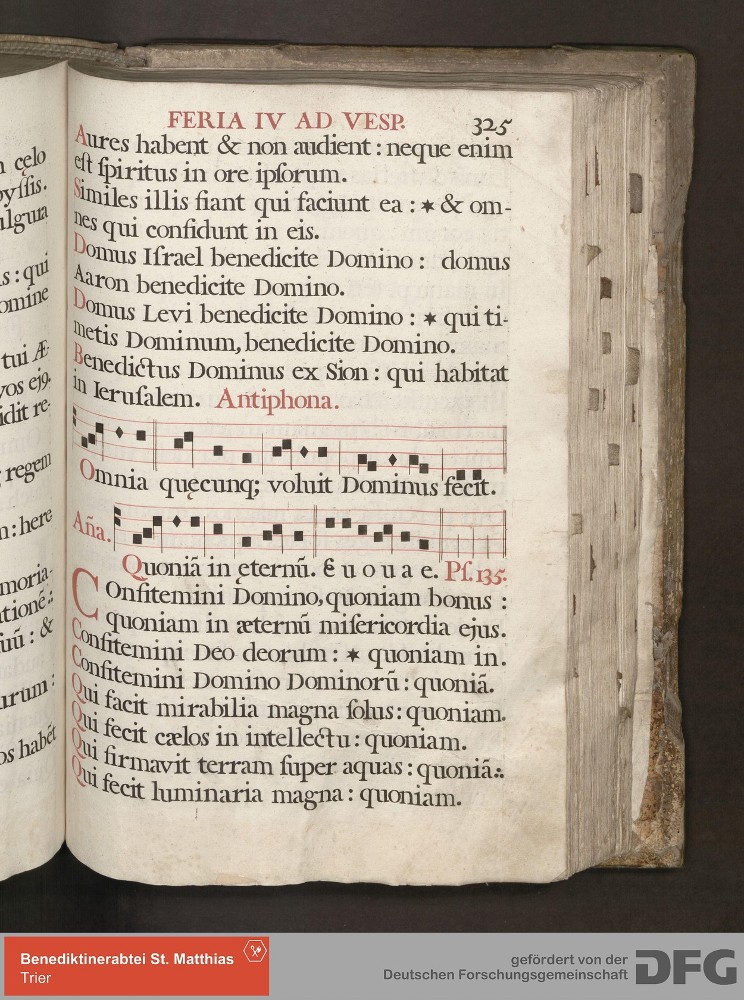 n cęlo
byſſis.
ulgura
s : qui
omine
tui Æ-
vos ejꝯ.
idit re-
regem
n : here
moria-
ationē.:
uū : &
urum :
os habēt
FERIA IV AD VESP. 325
Aures habent & non audient : neque enim
eſt ſpiritus in ore ipſorum.
Similes illis fiant qui faciunt ea : ✶ & om-
nes qui confidunt in eis.
Domus Iſrael benedicite Domino : domus
Aaron benedicite Domino.
Domus Levi benedicite Domino : ✶ qui ti-
metis Dominum, benedicite Domino.
Benedictus Dominus ex Sion : qui habitat
in Ieruſalem. Antiphona.
Omnia quęcunq; voluit Dominus fecit.
Aña.
Quoniā in ęternū. E u o u a e. Pſ. 135.
Confitemini Domino, quoniam bonus :
quoniam in æternū miſericordia ejus.
Confitemini Deo deorum : ✶ quoniam in.
Confitemini Domino Dominorū : quoniā.
Qui facit mirabilia magna ſolus : quoniam.
Qui fecit cælos in intellectu : quoniam.
Qui firmavit terram ſuper aquas : quoniā.:
Qui fecit luminaria magna : quoniam.
Benediktinerabtei St. Matthias
Trier
gefördert von der
Deutschen Forschungsgemeinschaft
DFG